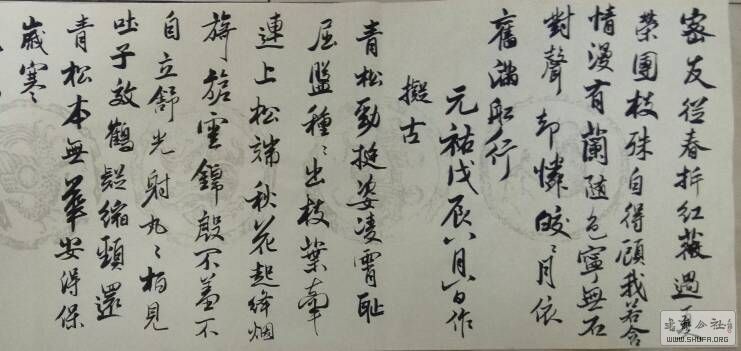 密友從春拆紅薇過夏
榮團枝殊自得顧我若含
情漫有蘭隨色寧無石
對聲却憐皎〻月依
舊滿船行
元祐戊辰八月八日作
擬古
青松勁挺姿凌霄恥
屈盤種〻出枝葉牽
連上松端秋花起絳烟
旖旎雲錦殷不羞不
自立舒光射丸〻栢見
吐子效鶴疑縮頸還
青松本無華安得保
歲寒
書法公社
WWW.SHUFA.ORG